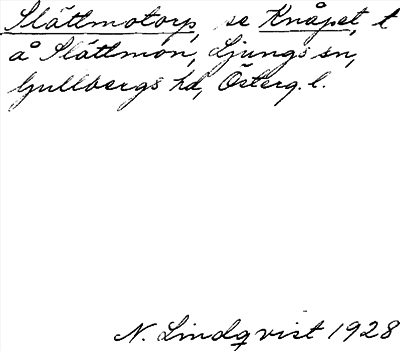 Slättmotorp, se Knåpet, t
å Slättmon, Ljungs sn,
Gullbergs hd, Österg. l.
N. Lindqvist 1928